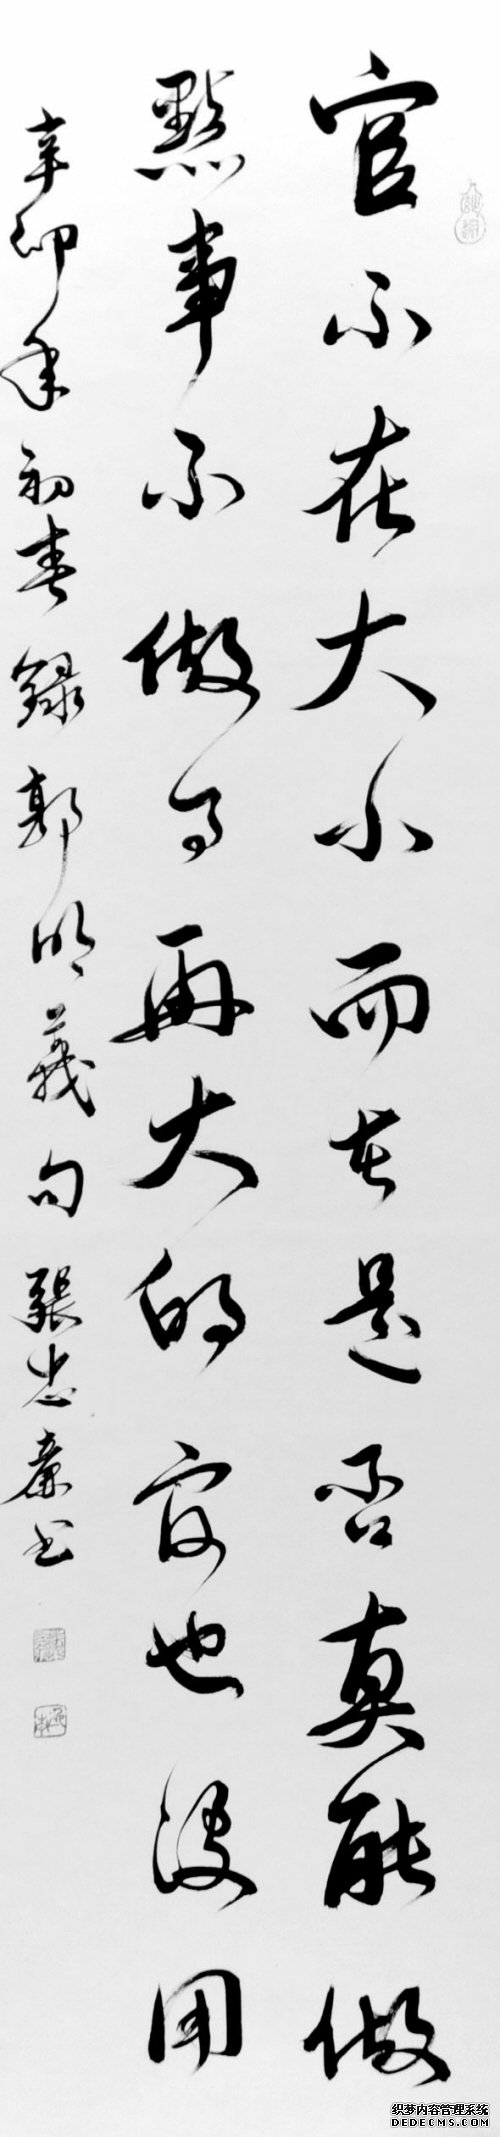 官不在大小而在是否真能做
點事不做事再大的官也沒用
辛卯年初春錄郭明義句張忠廉书
织梦内容管理系统
DEDECMS.COM